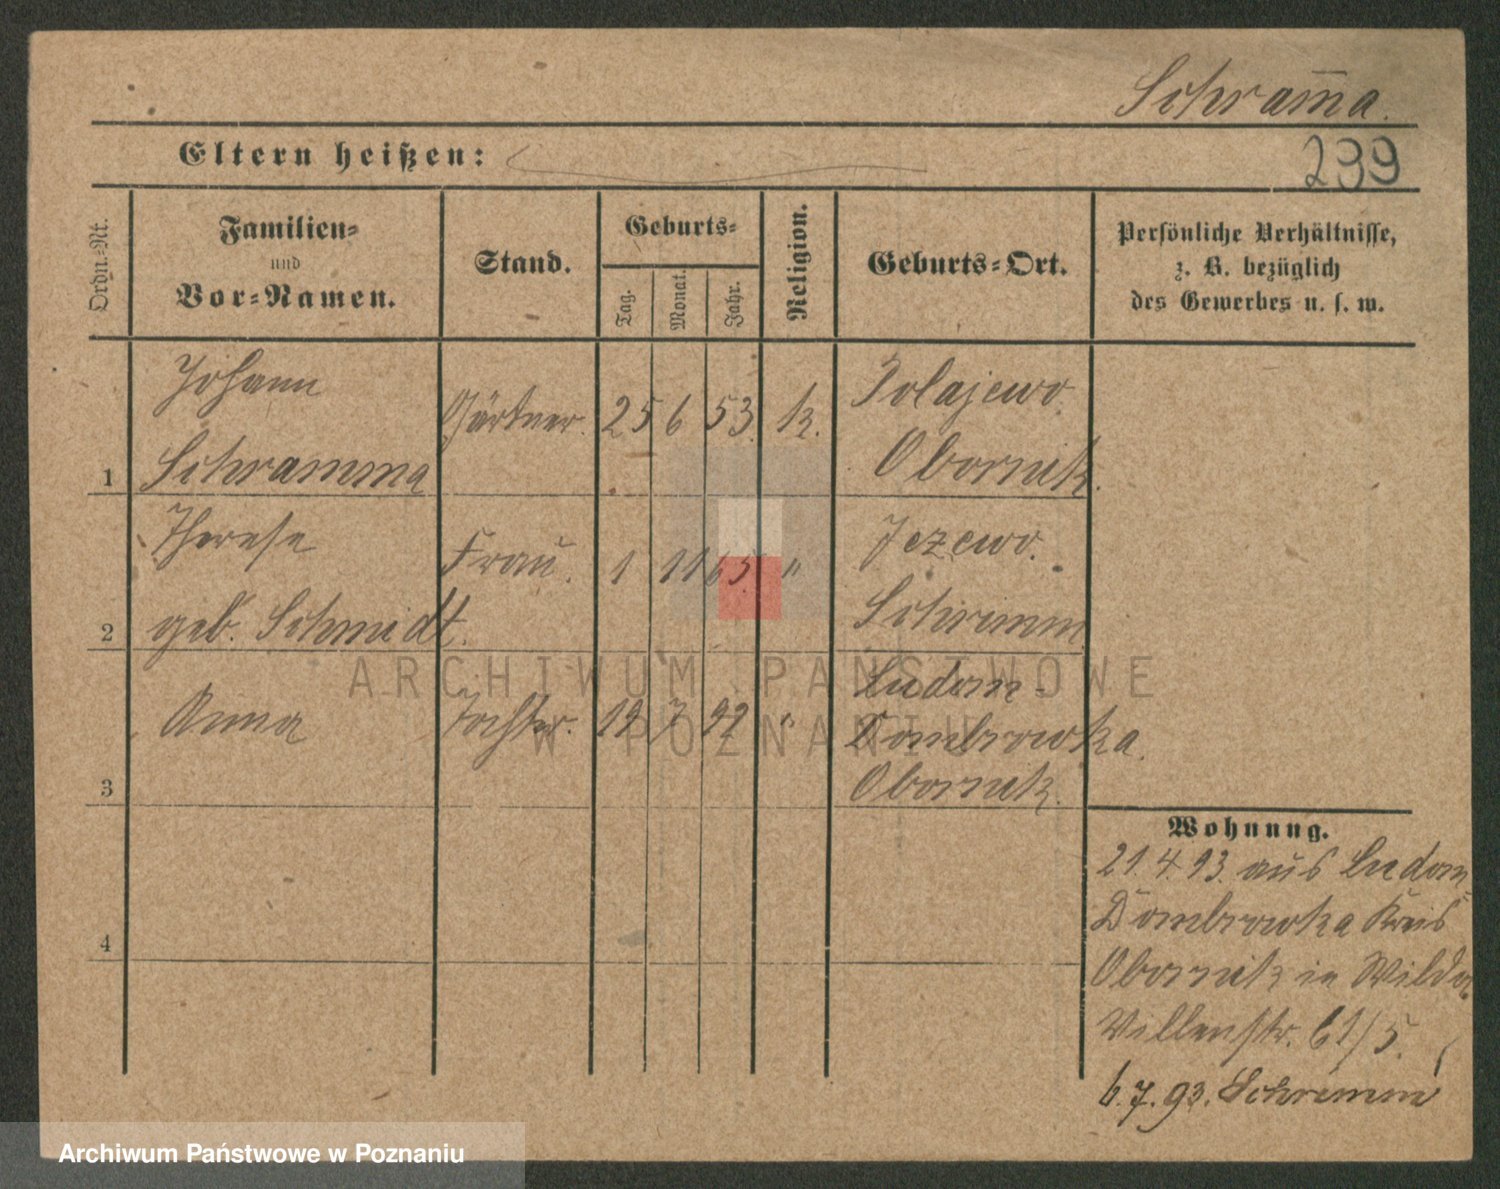 Schram̄a.
239
Eltern heißen:
Ordn.-Nr.
Familien-
und
Vor-Namen.
Stand.
Geburts-
Tag.
Monat.
Jahr.
Religion.
Geburts-Ort.
Persönliche Verhältnisse,
z. B. bezüglich
des Gewerbes u. s. w.
1
Johann
Schramma
Gärtner.
25 6 53. k.
Polajewo.
Obornik.
2
Therese
geb. Schmidt.
Frau.
1 11 65. "
Jezewo.
Schrimm
3
Anna
Tochter.
19 7 92 "
Ludom-
Dombrowka.
Obornik.
4
Wohnung.
21.4.93. aus Ludom-
Dombrowka Kreis
Obornik in Wilda
Villenstr. 61/5.
6.7.93. Schrimm
ARCHIWUM PAŃSTWOWE
W POZNANIU
Archiwum Państwowe w Poznaniu